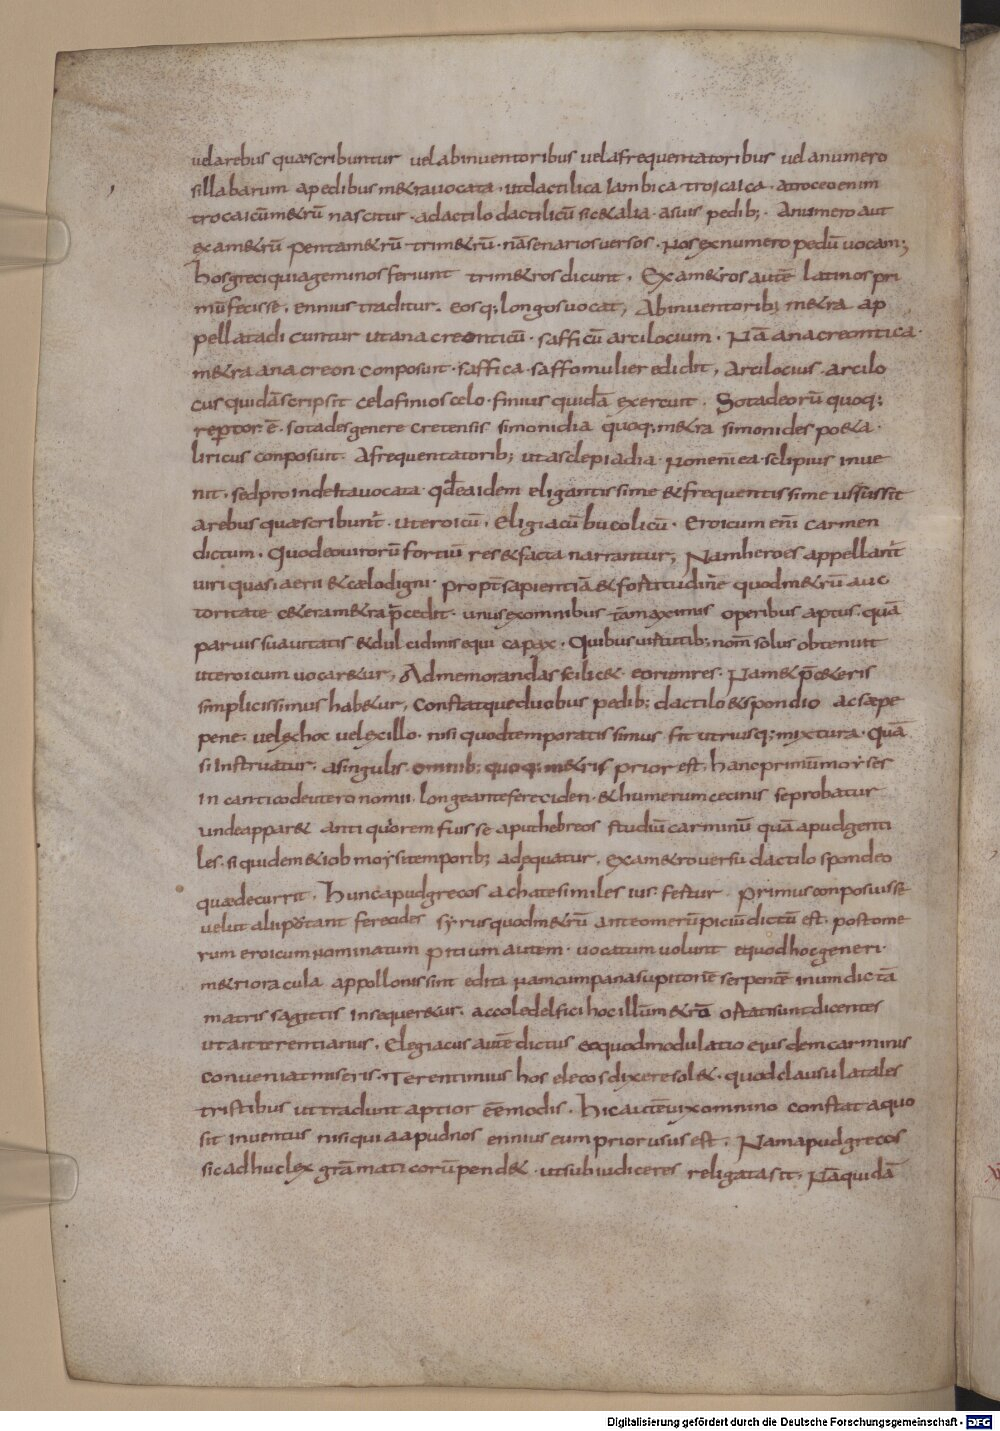 uel arebus quæscribuntur uel abinuentoribus uel afrequentatoribus uel anumero
sillabarum apedibus m&ra uocata · ut dactilica iambica troicaica · atroceo enim
trocaicū m&rū nascitur · adactilo dactilicū sic & alia · asuis pedib; · Anumero aut
examērū pentam&rū trim&rū · nā senarios uersos · Nos exnumero pedū uocam;
hos greci quia geminos feriunt trim&ros dicunt · Exam&ros autē latinos pri
mū fecisse · ennius traditur · eosq; longos uocat, Abinuentorib; m&ra ap
pellata dicuntur ut anacreonticū · safficū arcilocium · Nā anacreontica ·
m&ra anacreon conposuit · saffica · saffo mulier edidit, arcilocius · arcilo
cus quidā scripsit celofinios celo · finius quidā exercuit · Sotadeorū quoq;
repertor ē · sotades genere cretensis simonidia quoq; m&ra simonides po&a ·
liricus conposuit · Afrequentatorib; ut asclepiadia · Non enī ea · sclipius inue
nit · sed proinde ita uocata · qđ ea idem eligantissime & frequentissime ussussit
arebus quæscribunt̄ · ut eroicū, eligiacū bucolicū · Eroicum enī carmen
dictum · Quod eo uirorū fortiū res & facta narrantur; Nam heroes appellant̄
uiri quasi aerii & cælo digni · propt̄ sapientiā & fortitudinē quod m&rū auc
toritate c&era m&ra p̄cedit · unus ex omnibus tā maximis operibus aptus · quā
paruis suauitatis & dulcidinis equi capax · Quibus uirtutib; nom̄ solus obtenuit
ut eroicum uocar&ur, Ad memorandas scilic& eorum res · Nam & p̄ c&eris
simplicissimus hab&ur, Constatque duobus pedib; dactilo & spondio ac sæpe
pene · uel ex hoc uel ex illo · nisi quod temporatissimus fit utriusq; mixtura · quā
si instruatur · asingulis omnib; quoq; m&ris prior est · hanc primū moyses
in cantico deuteronomii · longe ante fereciden · & humerum cecinis se probatur
unde appar& antiquiorem fuisse aput hebreos studiū carminū quā apud genti
les · siquidem & iob moysi temporib; adequatur · exam&ro uersu dactilo spondeo
quæ decurrit · hunc apud grecos achatesimilesius · fertur · Primus conposuisse
uelut alii putant ferecides syrus quod m&rū ante omerū piciū dictū est · post ome
rum eroicum nominatum pitium autem · uocatum uolunt et quod hoc generi ·
m&ri oracula appollonis sint edita nam cum panasu pitonē serpentē inum dictā
matris sagittis insequer&ur · accole delfici hoc illū m&rō ortati sunt dicentes
ut ait terentianus · Elegiacus autē dictus eo quod modulatio eiusdem carminus
conueniat miseris · Terentinius hos elecos dixere sol& · quod clausula tales
tristibus ut tradunt aptior eēt modis · hic autē uix omnino constat aquo
sit inuentus nisi quia apud nos ennius eum prior usus est · Nam apud grecos
sic adhuc lex grāmaticorū pend& · ut sub iudice res religata sit · Nā quidā
Digitalisierung gefördert durch die Deutsche Forschungsgemeinschaft - DFG